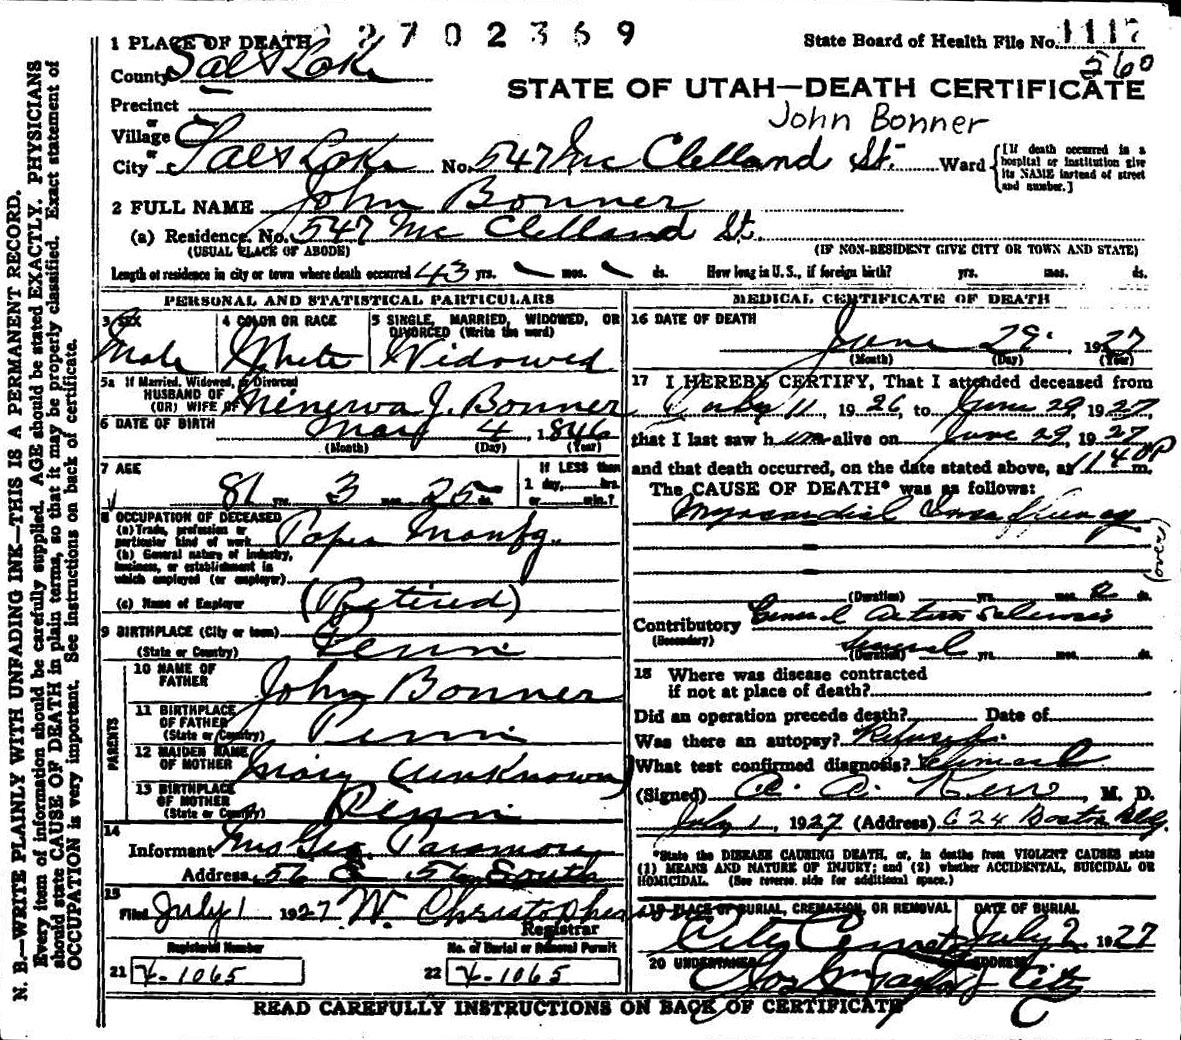 2702369
1 PLACE OF DEATH
State Board of Health File No. 1117
560
County Salt Lake
STATE OF UTAH—DEATH CERTIFICATE
Precinct
or
Village
John Bonner
or
City Salt Lake No. 547 Mc Clelland St. Ward
[If death occurred in a
hospital or institution give
its NAME instead of street
and number.]
2 FULL NAME John Bonner
(a) Residence. No. 547 Mc Clelland St.
(USUAL PLACE OF ABODE) (IF NON-RESIDENT GIVE CITY OR TOWN AND STATE)
Length of residence in city or town where death occurred 43 yrs. mos. ds. How long in U. S., if foreign birth? yrs. mos. ds.
PERSONAL AND STATISTICAL PARTICULARS
3 SEX
Male
4 COLOR OR RACE
White
5 SINGLE, MARRIED, WIDOWED, OR
DIVORCED (Write the word)
Widowed
5a If Married, Widowed, or Divorced
HUSBAND OF
(OR) WIFE OF Minerva J. Bonner
6 DATE OF BIRTH May 4, 1846
(Month) (Day) (Year)
7 AGE
81 yrs. 3 mos. 25 ds.
If LESS than
1 day, hrs.
or min.?
8 OCCUPATION OF DECEASED
(a) Trade, profession or
particular kind of work Paper Manfg.
(b) General nature of industry,
business, or establishment in
which employed (or employer)
(c) Name of Employer (Retired)
9 BIRTHPLACE (City or town)
(State or Country) Penn
PARENTS
10 NAME OF
FATHER John Bonner
11 BIRTHPLACE
OF FATHER
(State or Country) Penn
12 MAIDEN NAME
OF MOTHER Mary (Unknown)
13 BIRTHPLACE
OF MOTHER
(State or Country) Penn
14
Informant Mrs Geo. Paramore
Address 56 E 5th South
15
Filed July 1 1927 W. Christopherson
Registrar
Registered Number
No. of Burial or Removal Permit
21 X-1065
22 X-1065
MEDICAL CERTIFICATE OF DEATH
16 DATE OF DEATH
June 29 1927
(Month) (Day) (Year)
17 I HEREBY CERTIFY, That I attended deceased from
July 11, 1926, to June 29, 1927,
that I last saw him alive on June 29, 1927
and that death occurred, on the date stated above, at 1140P m.
The CAUSE OF DEATH* was as follows:
Myocardial Insufficiency
(over)
(Duration) yrs. mos. 2 ds.
Contributory General Arterio Sclerosis
(Secondary)
(Duration) Several yrs. mos. ds.
18 Where was disease contracted
if not at place of death?
Did an operation precede death? Date of
Was there an autopsy? Refused.
What test confirmed diagnosis? Clinical
(Signed) A. A. Kerr, M. D.
July 1, 1927 (Address) 624 Boston Bldg.
*State the DISEASE CAUSING DEATH, or, in deaths from VIOLENT CAUSES state
(1) MEANS AND NATURE OF INJURY; and (2) whether ACCIDENTAL, SUICIDAL OR
HOMICIDAL. (See reverse side for additional space.)
19 PLACE OF BURIAL, CREMATION, OR REMOVAL
City Cemetery
DATE OF BURIAL
July 2 1927
20 UNDERTAKER
Jos Wm Taylor
ADDRESS
City
READ CAREFULLY INSTRUCTIONS ON BACK OF CERTIFICATE
N. B.—WRITE PLAINLY WITH UNFADING INK—THIS IS A PERMANENT RECORD.
Every item of information should be carefully supplied. AGE should be stated EXACTLY. PHYSICIANS
should state CAUSE OF DEATH in plain terms, so that it may be properly classified. Exact statement of
OCCUPATION is very important. See instructions on back of certificate.